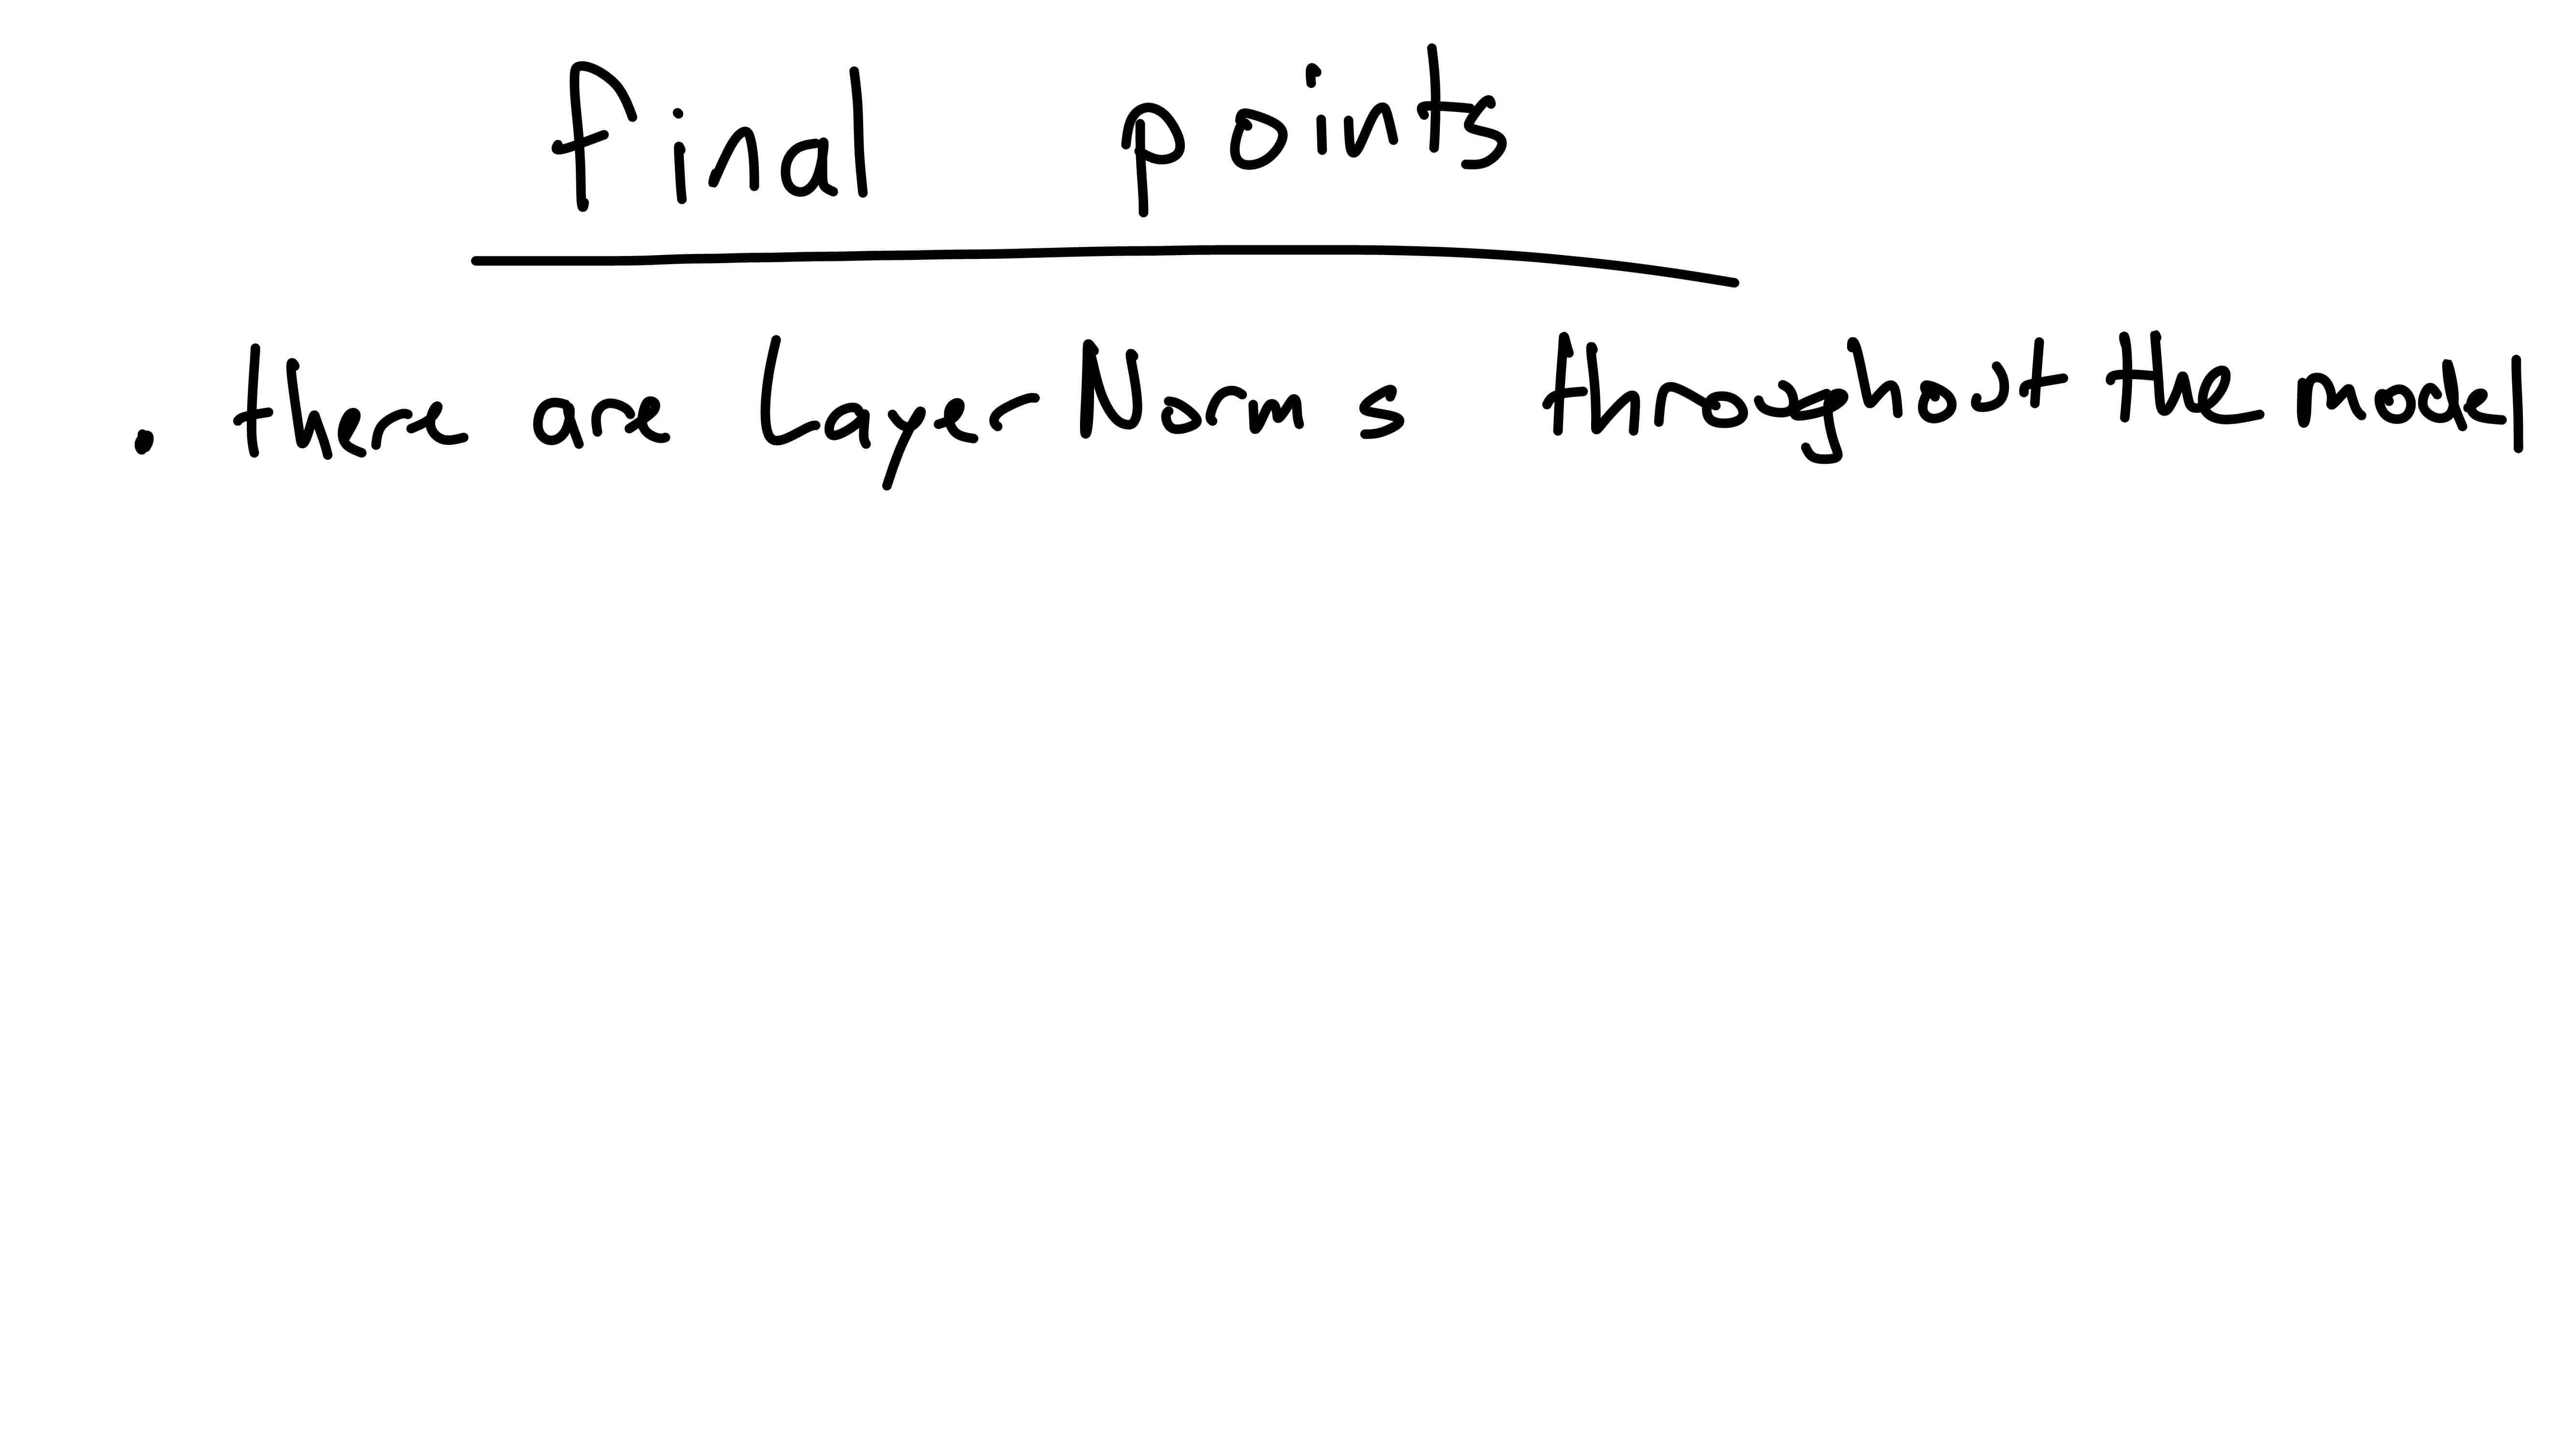 final points
. there are LayerNorms throughout the model